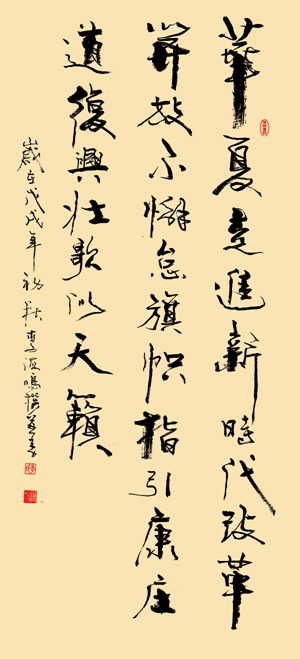 華夏走進新時代改革
開放不懈怠旗帜指引康庄
道復興壮歌似天籟
歲在戊戌年初秋李鳴撰并書